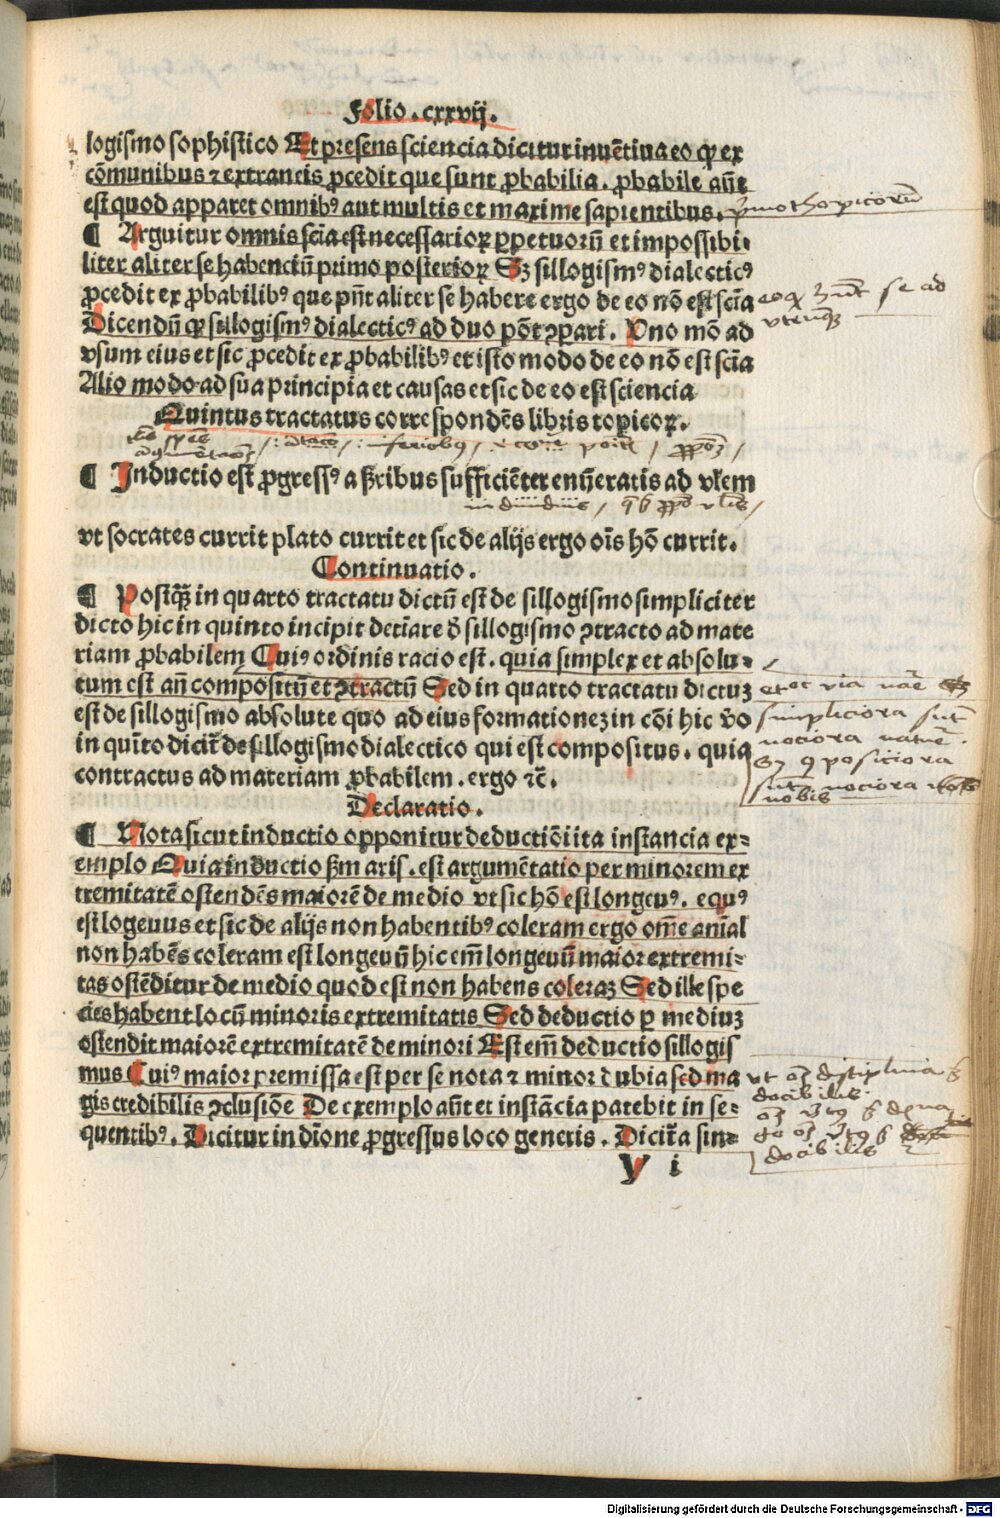 Folio . cxxvij .
logismo sophistico Et presens sciencia dicitur inuētiua eo ꝙ ex
cōmunibus ⁊ extraneis ꝓcedit que sunt ꝓbabilia . ꝓbabile aūt
est quod apparet omnibꝰ aut multis et maxime sapientibus .
¶ Arguitur omnis scīa est necessarioꝝ ꝑpetuorū et impossibi⸗
liter aliter se habenciū primo posterioꝝ Sꝫ sillogismꝰ dialecticꝰ
ꝓcedit ex ꝓbabilibꝰ que pn̄t aliter se habere ergo de eo nō est scīa
eoꝙ hn̄t se ad
Dicendū ꝙ sillogismꝰ dialecticꝰ ad duo pōt ꝯpari . Uno mō ad
vsum eius et sic ꝓcedit ex ꝓbabilibꝰ et isto modo de eo nō est scīa
Alio modo ad sua principia et causas et sic de eo est sciencia
Quintus tractatus correspondēs libris topicoꝝ .
¶ Inductio est ꝓgressꝰ a ꝑticularibus sufficiēter enūeratis ad vlem
vt socrates currit plato currit et sic de alijs ergo oīs hō currit .
Continuatio .
¶ Postꝗ̄ in quarto tractatu dictū est de sillogismo simpliciter
dicto hic in quinto incipit detīare ð sillogismo ꝯtracto ad mate
riam ꝓbabilem Cuiꝰ ordinis racio est . quia simplex et absolu⸗
tum est an̄ compositū et ꝯtractū Sed in quarto tractatu dictuꝫ
est de sillogismo absolute quo ad eius formationeꝫ in cōi hic v̄o
simpliciora sūt
in quīto dicit̄ de sillogismo dialectico qui est compositus . quia
nociora nature .
contractus ad materiam ꝓbabilem . ergo ⁊c̄ .
sꝫ ꝯpositiora
sūt nociora
nobis
Declaratio .
¶ Nota sicut inductio opponitur deductiōi ita instancia ex⸗
emplo Quia inductio ẜm aris . est argumētatio per minorem ex
tremitatē ostendēs maiorē de medio vt sic hō est longeuꝰ . equꝰ
est logeuus et sic de alijs non habentibꝰ coleram ergo om̄e anīal
non habēs coleram est longeuū hic em̄ longeuū maior extremi⸗
tas ostēditur de medio quod est non habens coleraꝫ Sed ille spe
cies habent locū minoris extremitatis Sed deductio ꝑ mediuꝫ
ostendit maiorē extremitatē de minori Est em̄ deductio sillogis
mus Cuiꝰ maior premissa est per se nota ⁊ minor dubia sed ma
gis credibilis ꝯclusiōe De exemplo aūt et instācia patebit in se⸗
quentibꝰ . Dicitur in dīone ꝓgressus loco generis . Dicit̄ a sin⸗
docibilis
y i
Digitalisierung gefördert durch die Deutsche Forschungsgemeinschaft - DFG